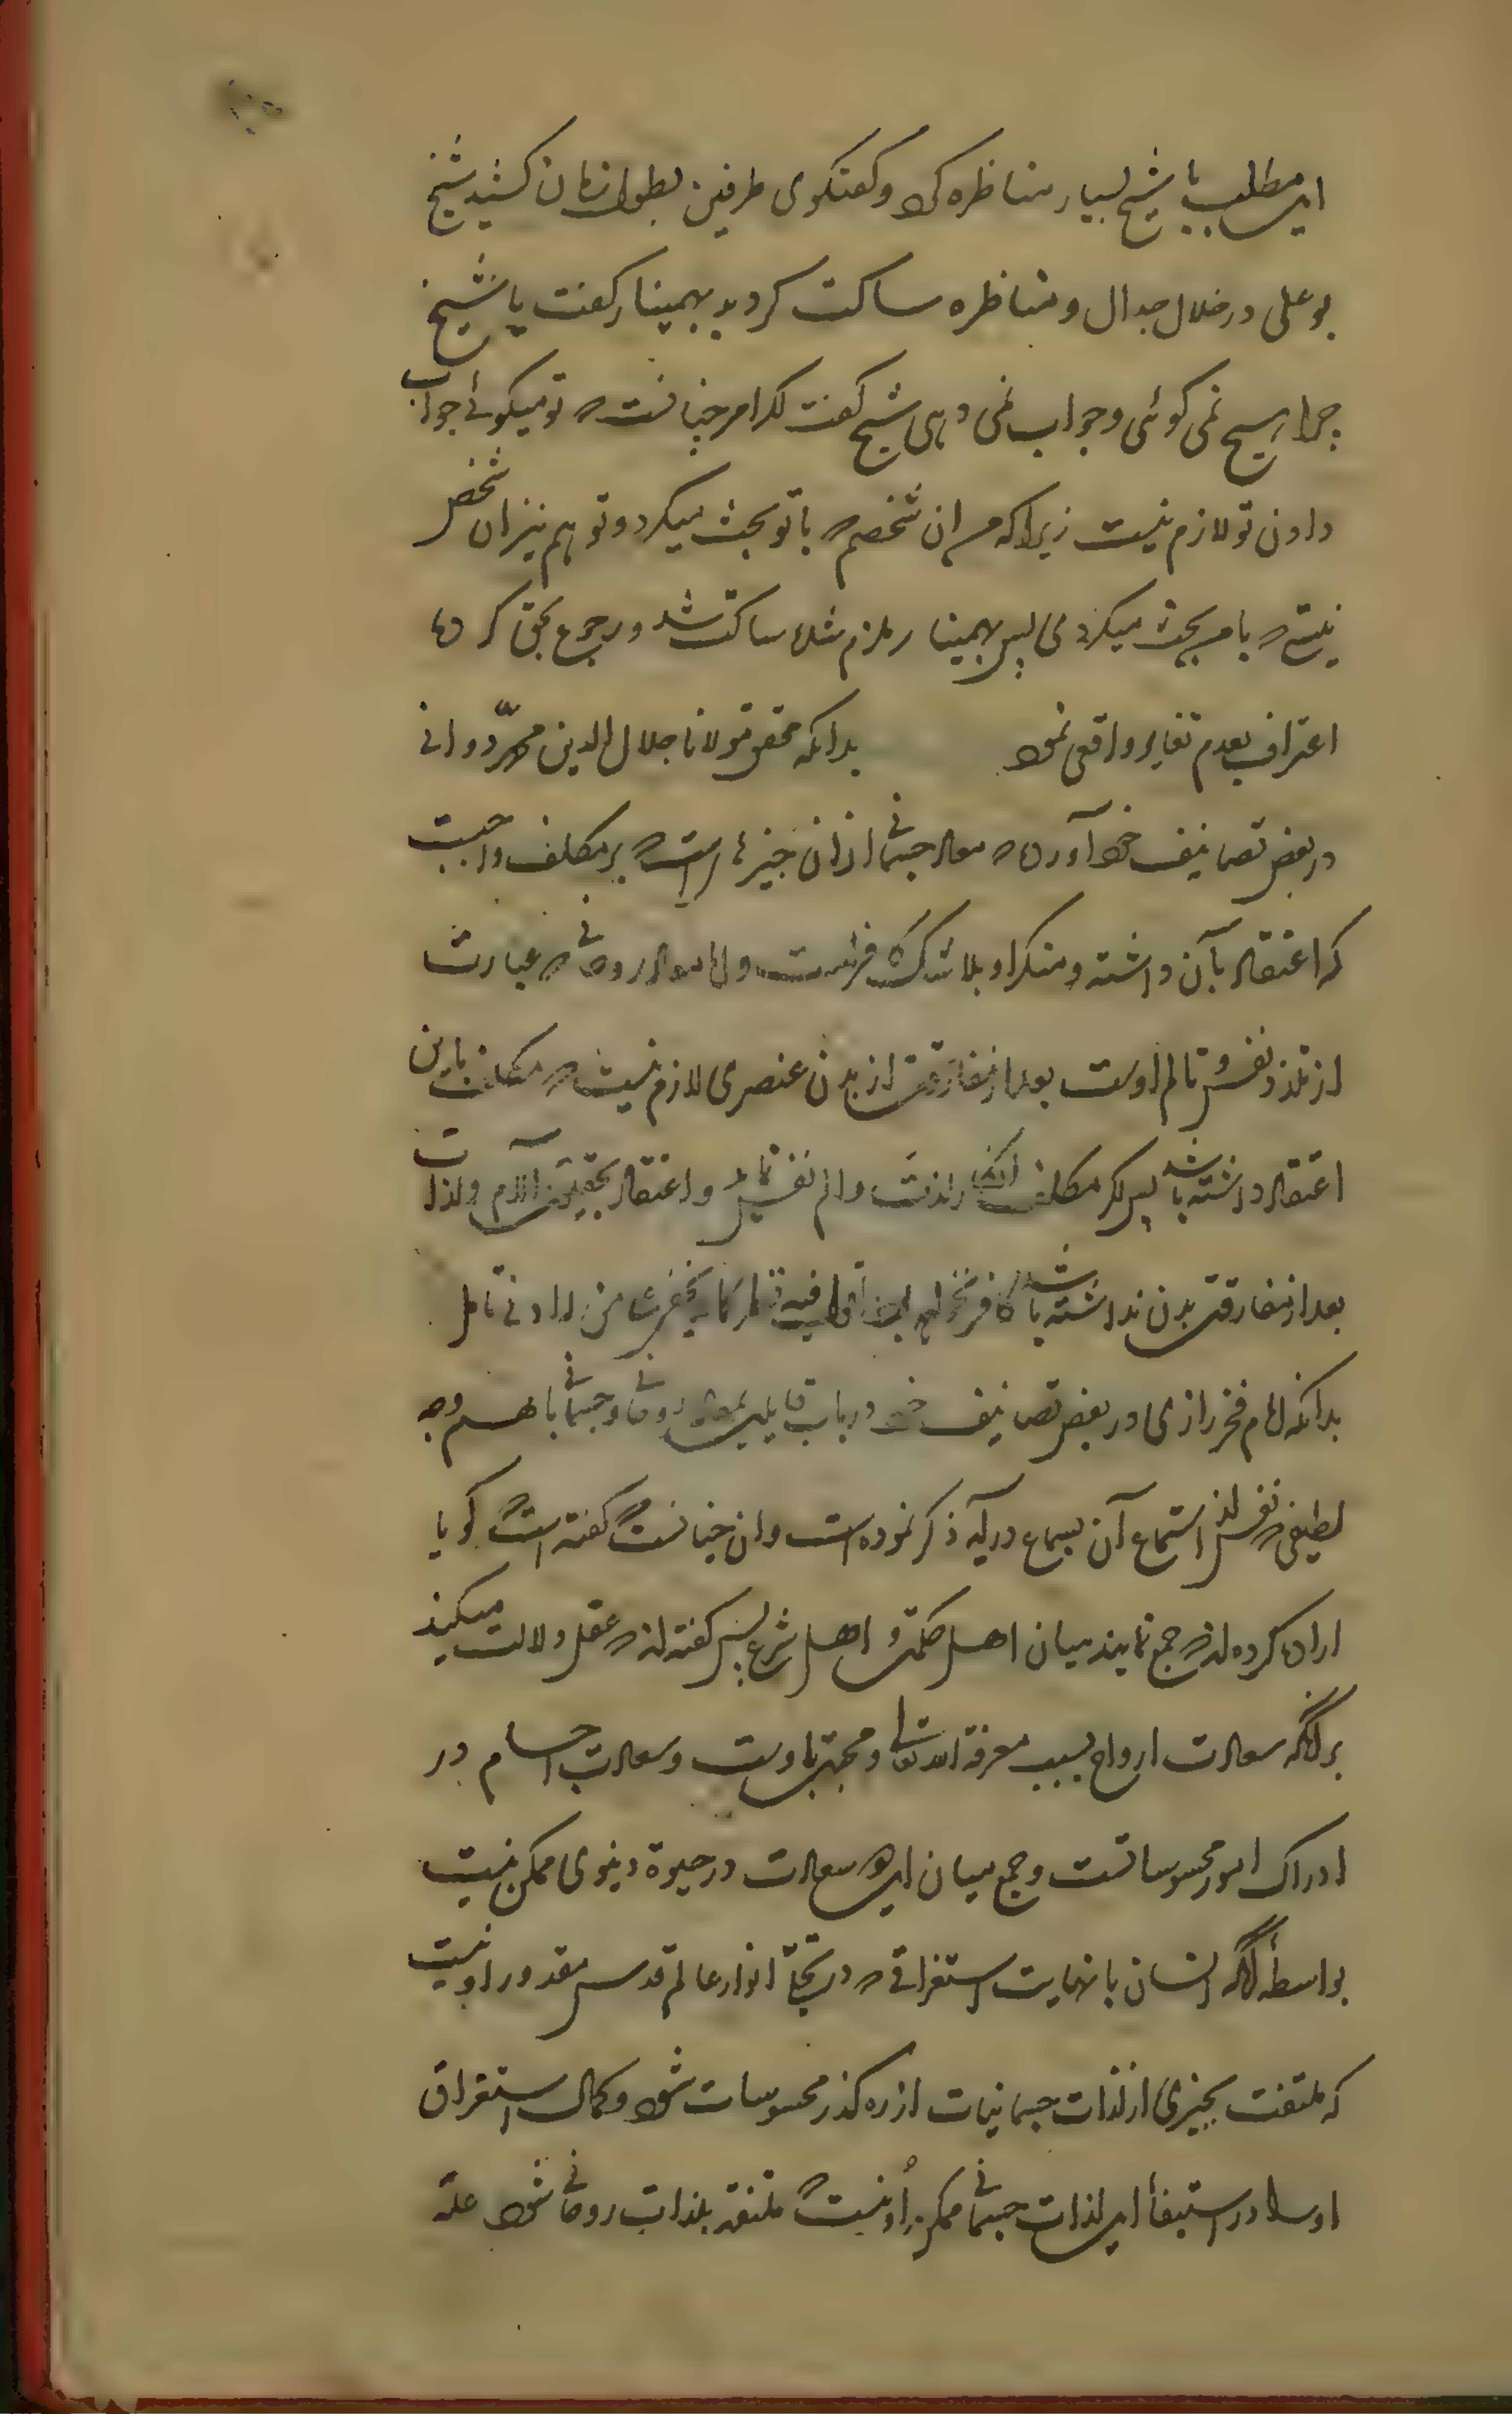 این مطلب با شیخ بسیار مناظره کرد و کفتکوی طرفین بطول زمان کشید شیخ
بو علی در خلال جدال و مناظره ساکت کردید بهمنیار کفت یا شیخ
چرا هیچ نمی کوئی و جواب نمی دهی شیخ کفت اکر امر چنانست که تو میکوئی جواب
دادن تو لازم نیست زیرا که من ان شخصم که با تو بحث میکرد و تو هم نیز ان شخص
نیستی که با من بحث میکردی پس بهمنیار ملزم شده ساکت شد و رجوع بحق کرده
اعتراف بعدم تغایر واقعی نمود بدانکه محقق مولانا جلال الدین محمد دوانی
در بعض تصانیف خود آورده که معاد جسمانی از ان چیزها است که بر مکلف واجبست
که اعتقاد بآن داشته و منکر او بلا شک کافرست و اما معاد روحانی که عبارت
از تلذذ نفس و تالم اوست بعد از مفارقت از بدن عنصری لازم نیست که مکلف باین
اعتقاد داشته باشد پس اکر مکلف انکار لذت و الم نفس نماید و اعتقاد بحقیت آلام و لذات
بعد از مفارقت بدن نداشته باشد کافر نخواهد بود
بدانکه امام فخر رازی در بعض تصانیف خود در باب قایلین بمعاد روحانی و جسمانی با هم وجه
لطیفی که نفس را استماع آن بسماع درآید ذکر نموده است و ان چنانست که کفته است که کویا
اراده کرده اند که جمع نمایند میان اهل حکمت و اهل شرع پس کفته اند که عقل دلالت میکند
بر آنکه سعادت ارواح بسبب معرفة الله تعالی و محبت باوست و سعادت اجسام در
ادراک امور محسوساتست و جمع میان این دو سعادت در حیوة دنیوی ممکن نیست
بواسطه آنکه انسان با نهایت استغراقی که در تجلی انوار عالم قدس مقدور او نیست
که ملتفت بچیزی از لذات جسمانیات از ره کذر محسوسات شود و کمال استغراق
او را در استیفاء این لذات جسمانی ممکن او نیست که ملتفت بلذات روحانی شود علة